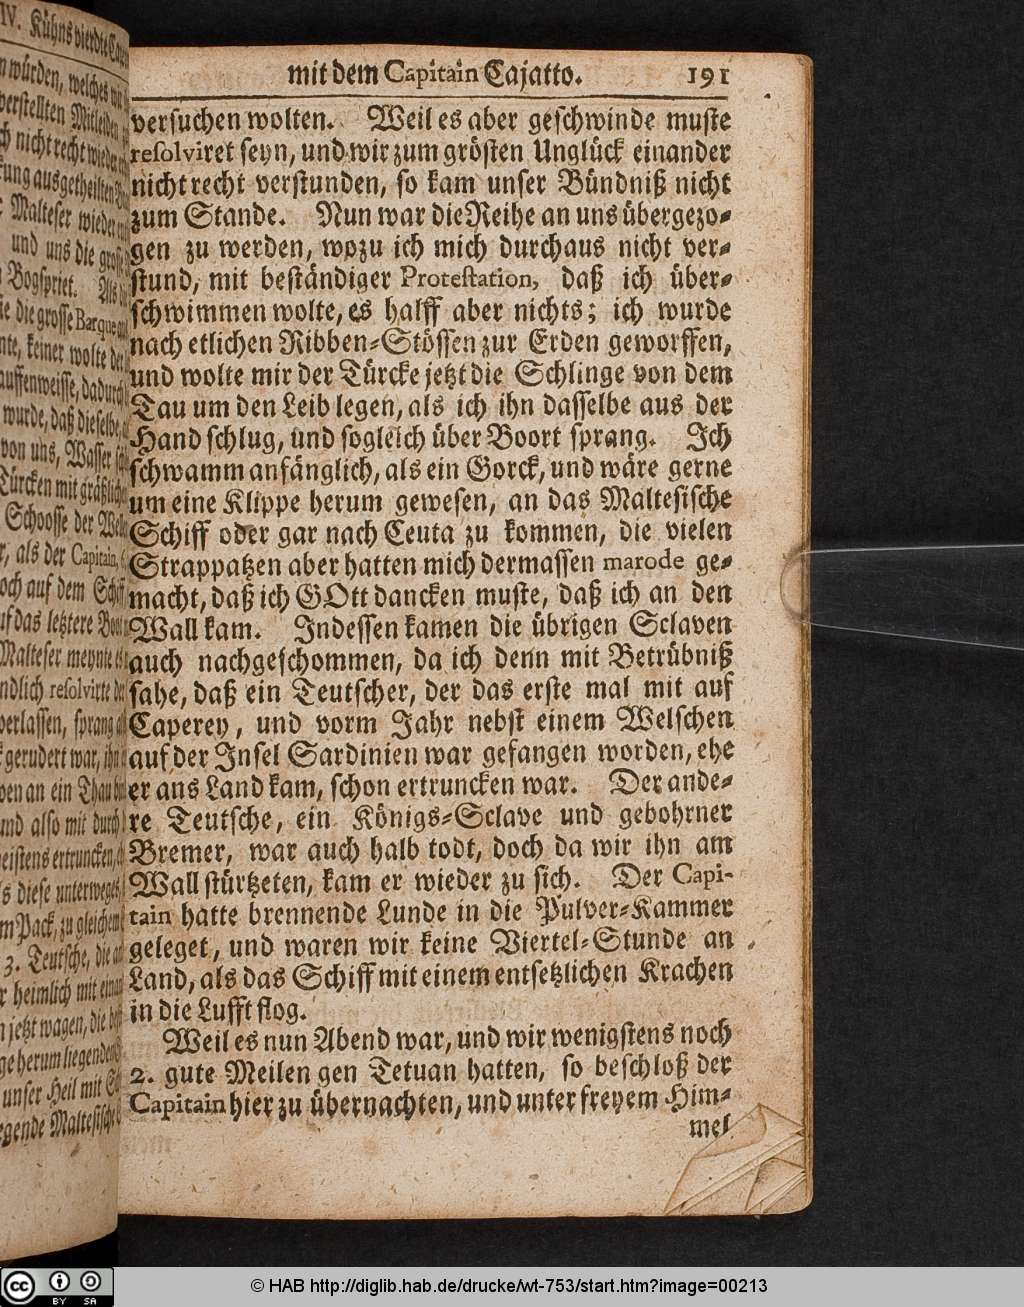 IV. Kühns vierdte
würden, welches
verstellten Mitleiden
nicht recht wieder
ausgetheilten
Malteser wieder
und uns die groß
Bogspriet. Als
die grosse Barque
keiner wolte
dadurch
wurde, daß dieselbe
von uns, Wasser
Türcken mit
Schoosse der
als der Capitain,
auf dem Schiff
das letztere
Malteser meynte
resolvirte
verlassen, sprang
gerudert war, ihn
an ein Thau
und also mit durch
meistens ertruncken,
diese unterweges
Pack, zu gleichem
3. Teutsche, die
heimlich mit
jetzt wagen, die
herum liegenden
unser Heil mit
Maltesische
mit dem Capitain Cajatto. 191
versuchen wolten. Weil es aber geschwinde muste
resolviret seyn, und wir zum grösten Unglück einander
nicht recht verstunden, so kam unser Bündniß nicht
zum Stande. Nun war die Reihe an uns übergezo-
gen zu werden, wozu ich mich durchaus nicht ver-
stund, mit beständiger Protestation, daß ich über-
schwimmen wolte, es halff aber nichts; ich wurde
nach etlichen Ribben-Stössen zur Erden geworffen,
und wolte mir der Türcke jetzt die Schlinge von dem
Tau um den Leib legen, als ich ihn dasselbe aus der
Hand schlug, und sogleich über Boort sprang. Ich
schwamm anfänglich, als ein Gorck, und wäre gerne
um eine Klippe herum gewesen, an das Maltesische
Schiff oder gar nach Ceuta zu kommen, die vielen
Strappatzen aber hatten mich dermassen marode ge-
macht, daß ich GOtt dancken muste, daß ich an den
Wall kam. Indessen kamen die übrigen Sclaven
auch nachgeschommen, da ich denn mit Betrübniß
sahe, daß ein Teutscher, der das erste mal mit auf
Caperey, und vorm Jahr nebst einem Welschen
auf der Insel Sardinien war gefangen worden, ehe
er ans Land kam, schon ertruncken war. Der ande-
re Teutsche, ein Königs-Sclave und gebohrner
Bremer, war auch halb todt, doch da wir ihn am
Wall stürtzeten, kam er wieder zu sich. Der Capi-
tain hatte brennende Lunde in die Pulver-Kammer
geleget, und waren wir keine Viertel-Stunde an
Land, als das Schiff mit einem entsetzlichen Krachen
in die Lufft flog.
Weil es nun Abend war, und wir wenigstens noch
2. gute Meilen gen Tetuan hatten, so beschloß der
Capitain hier zu übernachten, und unter freyem Him-
mel
cc BY SA
© HAB http://diglib.hab.de/drucke/wt-753/start.htm?image=00213